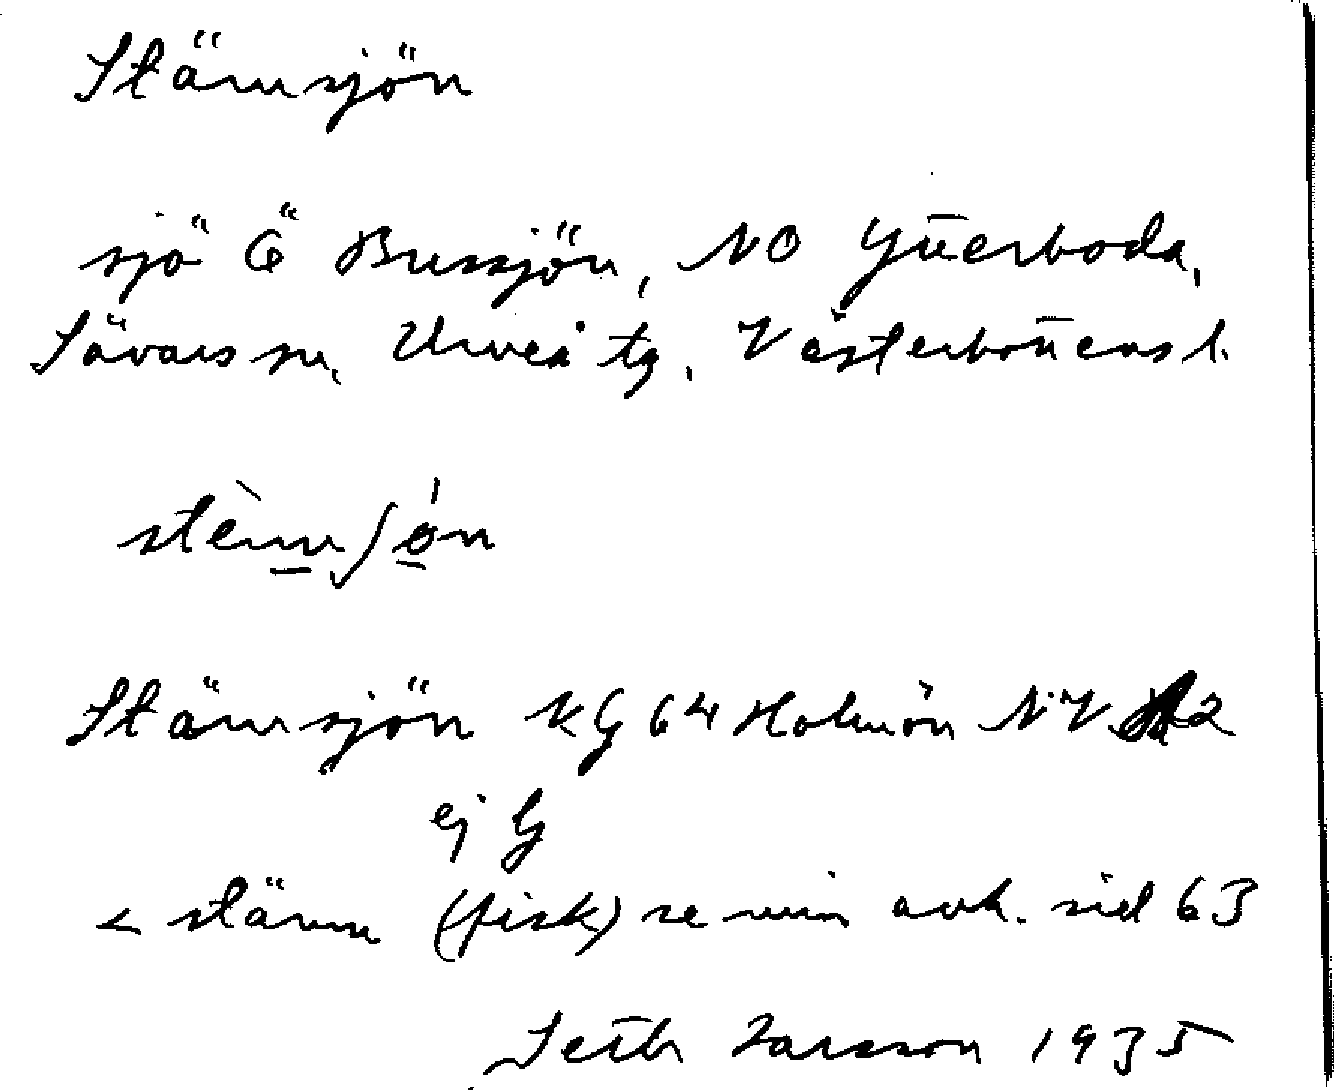 Stämsjön
sjö Ö Bussjön, NO Güerboda,
Sävars sn, Umeå tg, Västerbottens l.
stèmʃón
Stämsjön KG 64 Holmön NV 2
ej G
< stäm (fisk) se min avh. sid 63
Seth Larsson 1935